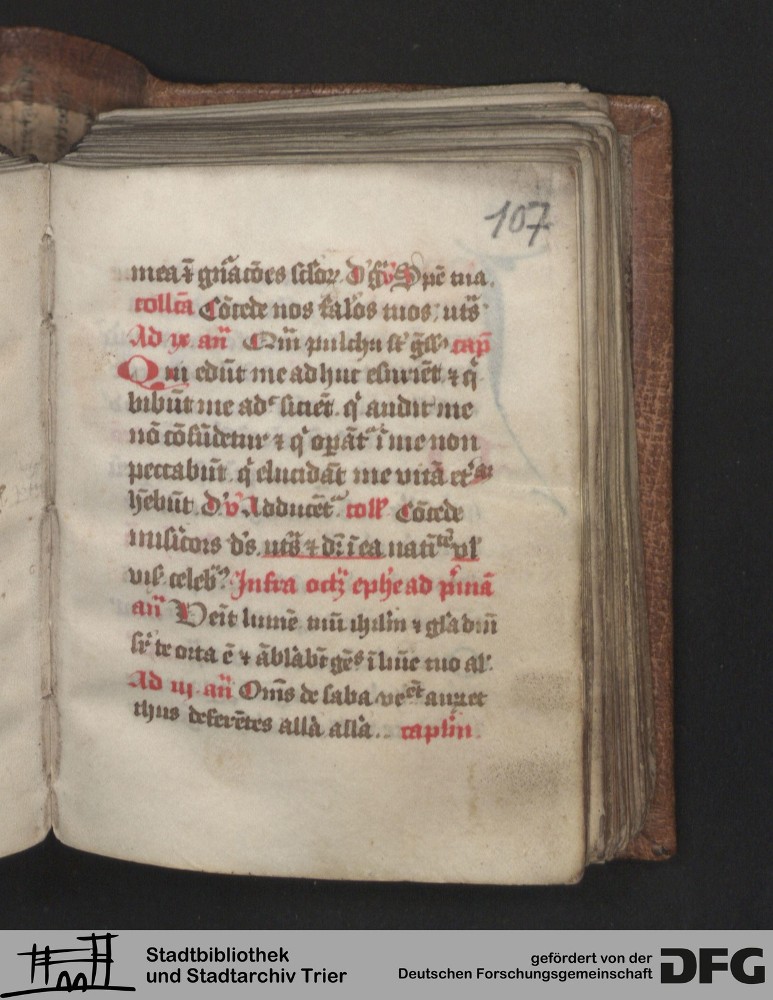 107
mea ⁊ gn̄acōes sclor D' gr̄a V Spē tua
collcā Cōcede nos falos tuos ut s̄
Ad ix an̄ Qm̄ pulchra cap̄
Qui edūt me adhuc esuriēt ⁊ q̄
bibūt me adc siciēt. q̄ audit me
nō cōfūdetur ⁊ q̄ opāt' ī me non
peccabūt. q̄ elucidāt me vitā et
hēbūt D' v Adducēt coll' Cōcede
misicors d's. ut s̄ ⁊ dr̄ ī ea nati vl'
vis' celeb Infra oct epħie ad p̄mā
an̄ Veīt lumē tuū ihrlm ⁊ gla dnī
sr̄ te orta ē ⁊ ābłabt gēs ī lūīe tuo al'.
Ad iij an̄ Om̄s de saba veēt aurū et
thus deferētes allā allā.. caplm
Stadtbibliothek
und Stadtarchiv Trier
gefördert von der
Deutschen Forschungsgemeinschaft
DFG